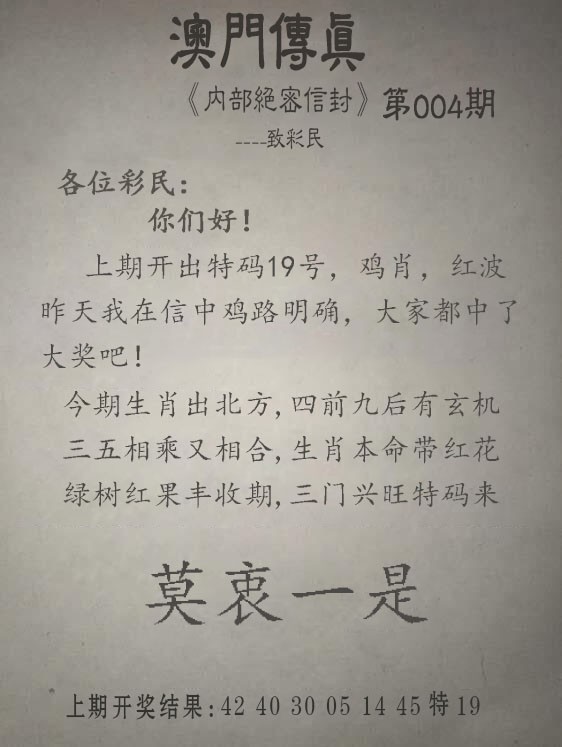 澳門傳眞
《内部絕密信封》第004期
----致彩民
各位彩民:
你们好!
上期开出特码19号，鸡肖，红波
昨天我在信中鸡路明确，大家都中了
大奖吧!
今期生肖出北方,四前九后有玄机
三五相乘又相合,生肖本命带红花
绿树红果丰收期,三门兴旺特码来
莫衷一是
上期开奖结果:42 40 30 05 14 45特19